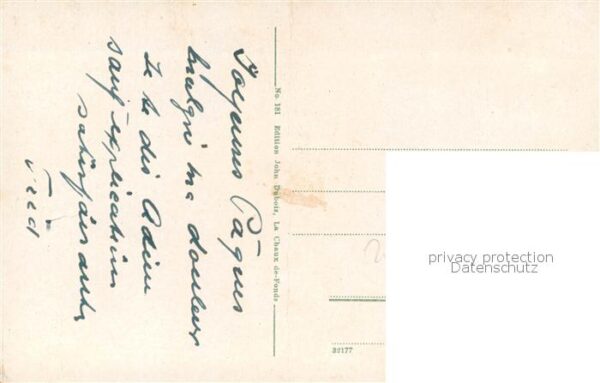 Joyeuses Pâques
malgré ma douleur
Je te dis Adieu
sauf explications
satisfaisantes
Fred
No. 181 Edition John Dubois, La Chaux-de-Fonds
privacy protection
Datenschutz
32177